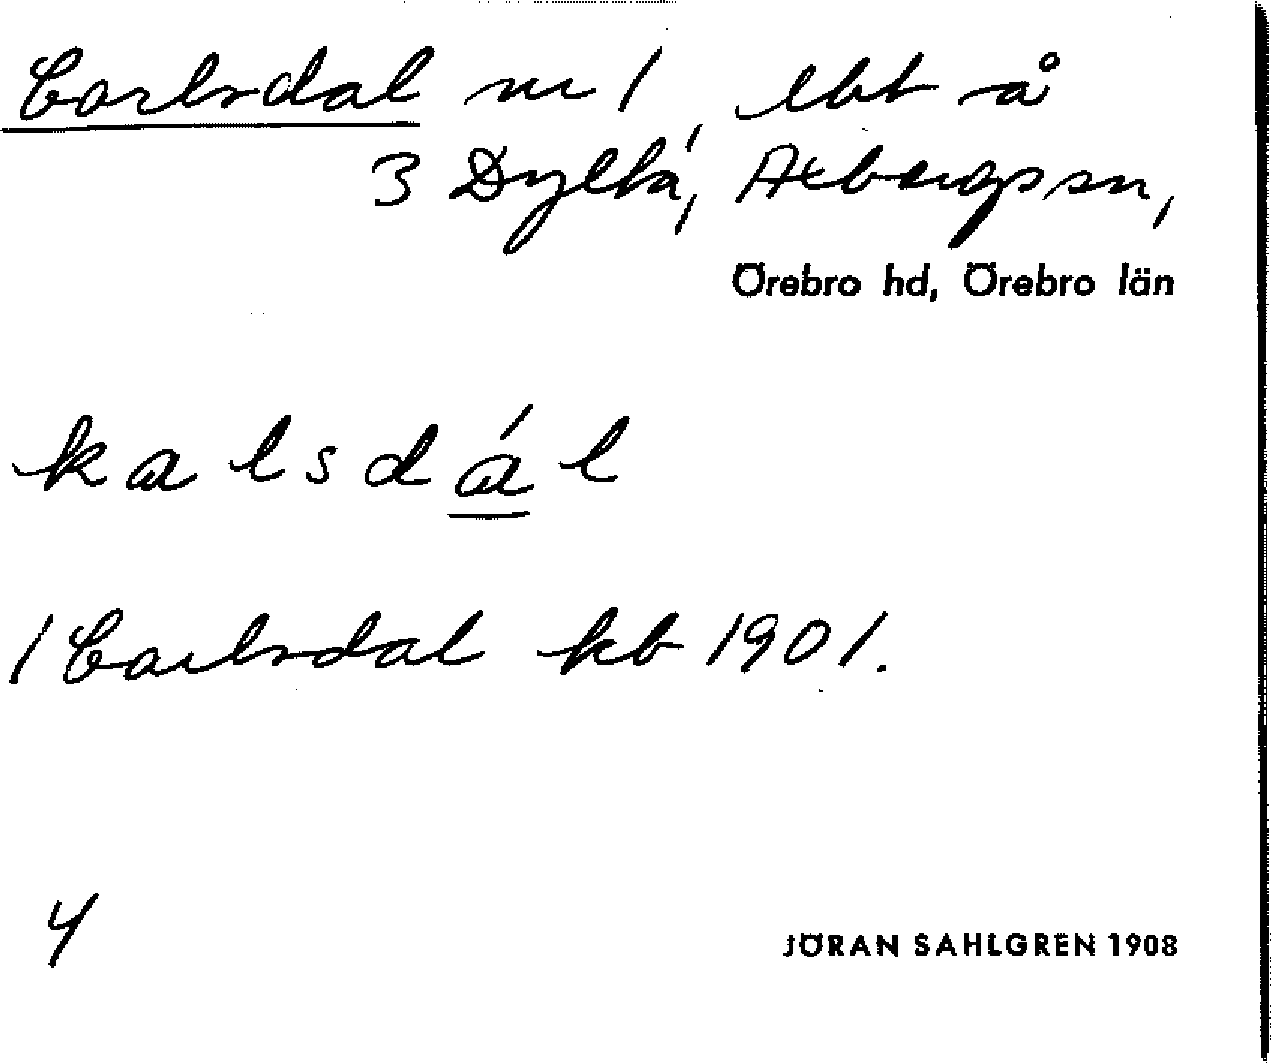 Carlsdal nr 1, lht å
3 Dylta, Axbergs sn,
Örebro hd, Örebro län
kalsdál
1 Carlsdal kb 1901.
4
JÖRAN SAHLGREN 1908